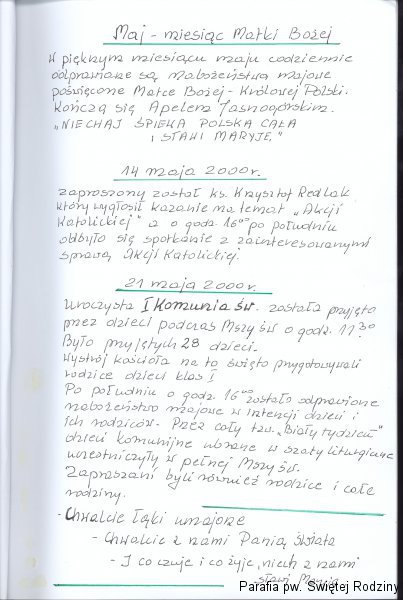 Maj - miesiąc Matki Bożej
W pięknym miesiącu maju codziennie
odprawiane są nabożeństwa majowe
poświęcone Matce Bożej - Królowej Polski.
Kończą się Apelem Jasnogórskim.
"NIECHAJ ŚPIEWA POLSKA CAŁA
I SŁAWI MARYJĘ."
14 maja 2000 r.
zaproszony został ks. Krzysztof Redlak
który wygłosił kazanie na temat "Akcji
Katolickiej" a o godz. 16⁰⁰ po południu
odbyło się spotkanie z zainteresowanymi
sprawą Akcji Katolickiej.
21 maja 2000 r.
Uroczysta I Komunia św. została przyjęta
przez dzieci podczas Mszy św o godz. 11³⁰
Było przyjętych 28 dzieci.
Wystrój kościoła na to święto przygotowywali
rodzice dzieci klas I
Po południu o godz. 16⁰⁰ zostało odprawione
nabożeństwo majowe w intencji dzieci i
ich rodziców. Przez cały tzw. "Biały tydzień"
dzieci komunijne ubrane w szaty liturgiczne
uczestniczyły w pełnej Mszy św.
Zapraszani byli również rodzice i całe
rodziny.
- Chwalcie łąki umajone
- Chwalcie z nami Panią Świata
- I co czuje i co żyje, niech z nami
sławi Maryję
Parafia pw. Świętej Rodziny